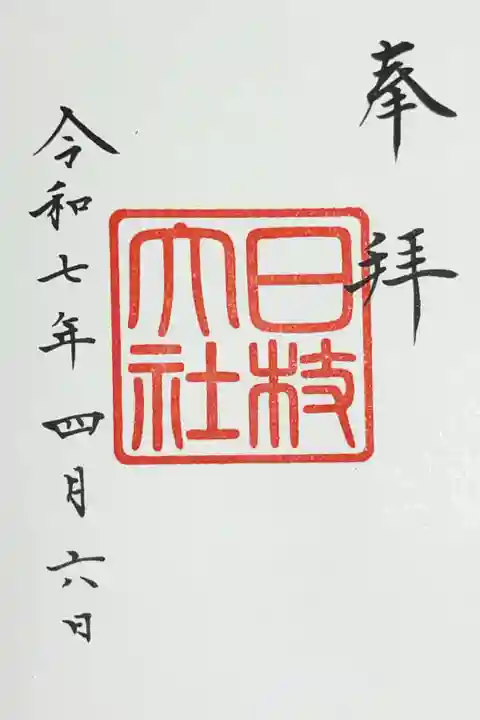 奉拝
日枝
大社
令和七年四月六日